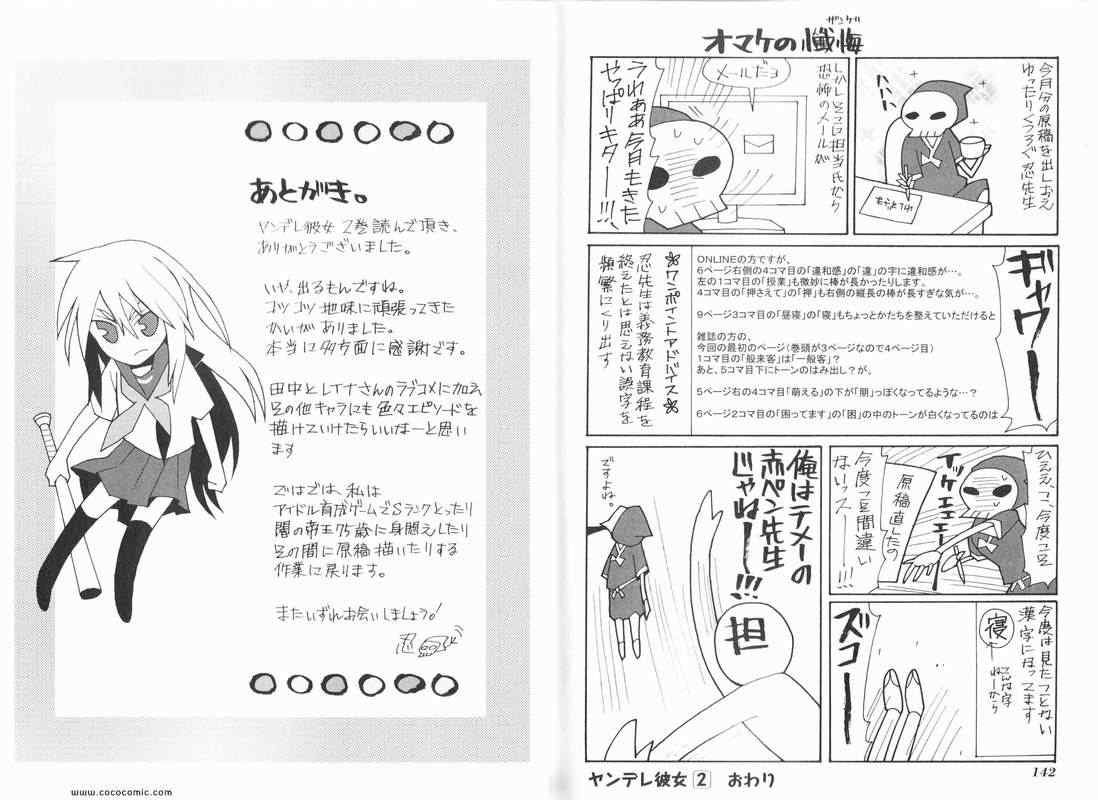 オマケの懺悔
ザンゲ
今月分の原稿を出しおえ
ゆったりくつろぐ忍先生
ハハハ
しかしそこに担当氏から
恐怖のメールが
メールだヨ
うわぁあ今月もきた
やっぱりキターー!!!
ギャワーー
ONLINEの方ですが、
6ページ右側の4コマ目の「違和感」の「違」の字に違和感が…。
左の1コマ目の「授業」も微妙に棒が長かったりします。
4コマ目の「押さえて」の「押」も右側の縦長の棒が長すぎな気が…。
9ページ3コマ目の「昼寝」の「寝」もちょっとかたちを整えていただけると
雑誌の方の、
今回の最初のページ(巻頭が3ページなので4ページ目)
1コマ目の「般来客」は「一般客」?
あと、5コマ目下にトーンのはみ出し?が。
5ページ右の4コマ目「萌える」の下が「朋」っぽくなってるような…?
6ページ2コマ目の「困ってます」の「困」の中のトーンが白くなってるのは
※ワンポイントアドバイス※
忍先生は義務教育課程を
終えたとは思えない誤字を
頻繁にくり出す
ひええ、こ、今度こそ
イッケエエエー
原稿直したの
今度こそ間違い
ないッスーー!!!
今度は見たことない
漢字になってます
寝
こんな字
ねーから
ズコーー
俺はテメーの
赤ペン先生
じゃねーー!!!
担
ですよね。
ヤンデレ彼女 2 おわり
142
あとがき。
ヤンデレ彼女 2巻読んで頂き、
ありがとうございました。
いや、出るもんですね。
コツコツ地味に頑張ってきた
かいがありました。
本当に多方面に感謝です。
田中とレナさんのラブコメに加え
その他キャラにも色々エピソードを
描けていけたらいいなーと思い
ます
ではでは、私は
アイドル育成ゲームでSランクとったり
闇の帝王75歳に身悶えしたり
その間に原稿描いたりする
作業に戻ります。
またいずれお会いしましょう!
忍
www.cococomic.com